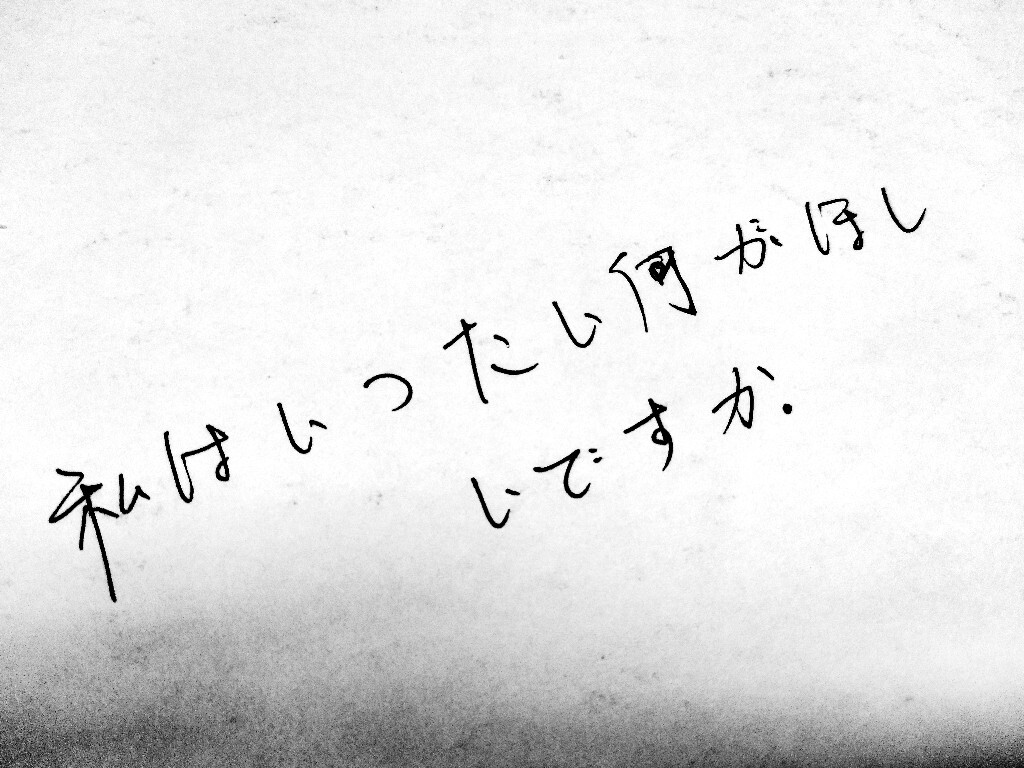 私はいったい何がほし
いですか.